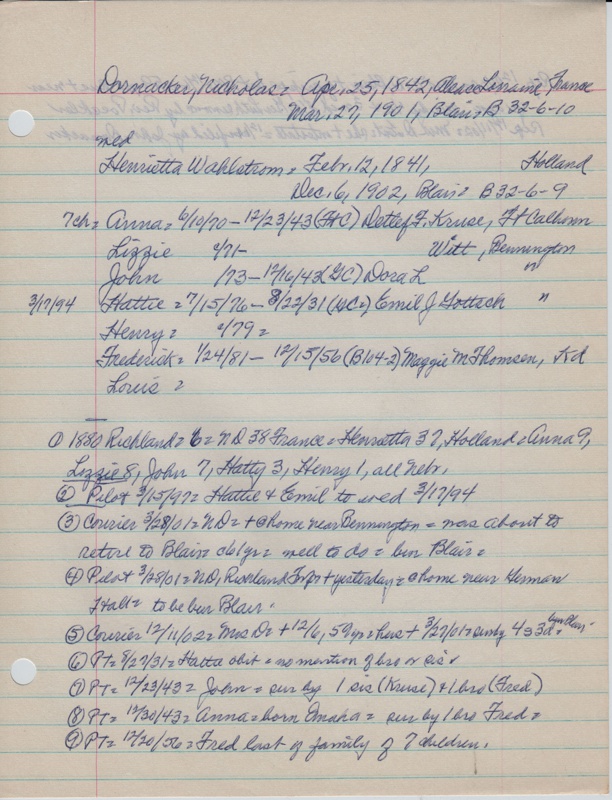 Dornacker, Nicholas = Apr. 25, 1842, Alsace Lorraine, France
Mar. 27, 1901, Blair = B 32-6-10
wed
Henrietta Wahlstrom = Febr. 12, 1841, Holland
Dec. 6, 1902, Blair = B 32-6-9
7ch = Anna = 6/10/70 - 12/23/43 (FtC) Detlef F. Kruse, Ft Calhoun
Lizzie /71- Witt, Bennington
John /73 - 12/16/43 (GC) Dora L "
3/17/94 Hattie = 7/15/76 - 8/22/31 (GC=) Emil J Gottsch "
Henry = /79 =
Frederick = 1/24/81 - 12/15/56 (B104-2) Maggie M Thomsen, Kd
Louis =
① 1880 Richland = 6 = ND 38 France = Henrietta 37, Holland = Anna 9,
Lizzie 8, John 7, Hatty 3, Henry 1, all Nebr.
② Pilot 3/15/97 = Hattie & Emil to wed 3/17/94
③ Courier 3/28/01 = ND = + @ home near Bennington = was about to
retire to Blair = 61yr = well to do = bur Blair =
④ Pilot 3/28/01 = ND, Richland Twp + yesterday = @ home near Herman
Hall = to be bur Blair.
⑤ Courier 12/11/02 = Mrs D = + 12/6, 59yr = hus + 3/27/01 = sur by 4s 3d = bur Blair
⑥ PT = 8/27/31 = Hattie obit = no mention of bro or sis
⑦ PT = 12/23/43 = John = sur by 1 sis (Kruse) & 1 bro (Fred)
⑧ PT = 12/30/43 = Anna = born Omaha = sur by 1 bro Fred =
⑨ PT = 12/20/56 = Fred last of family of 7 children.